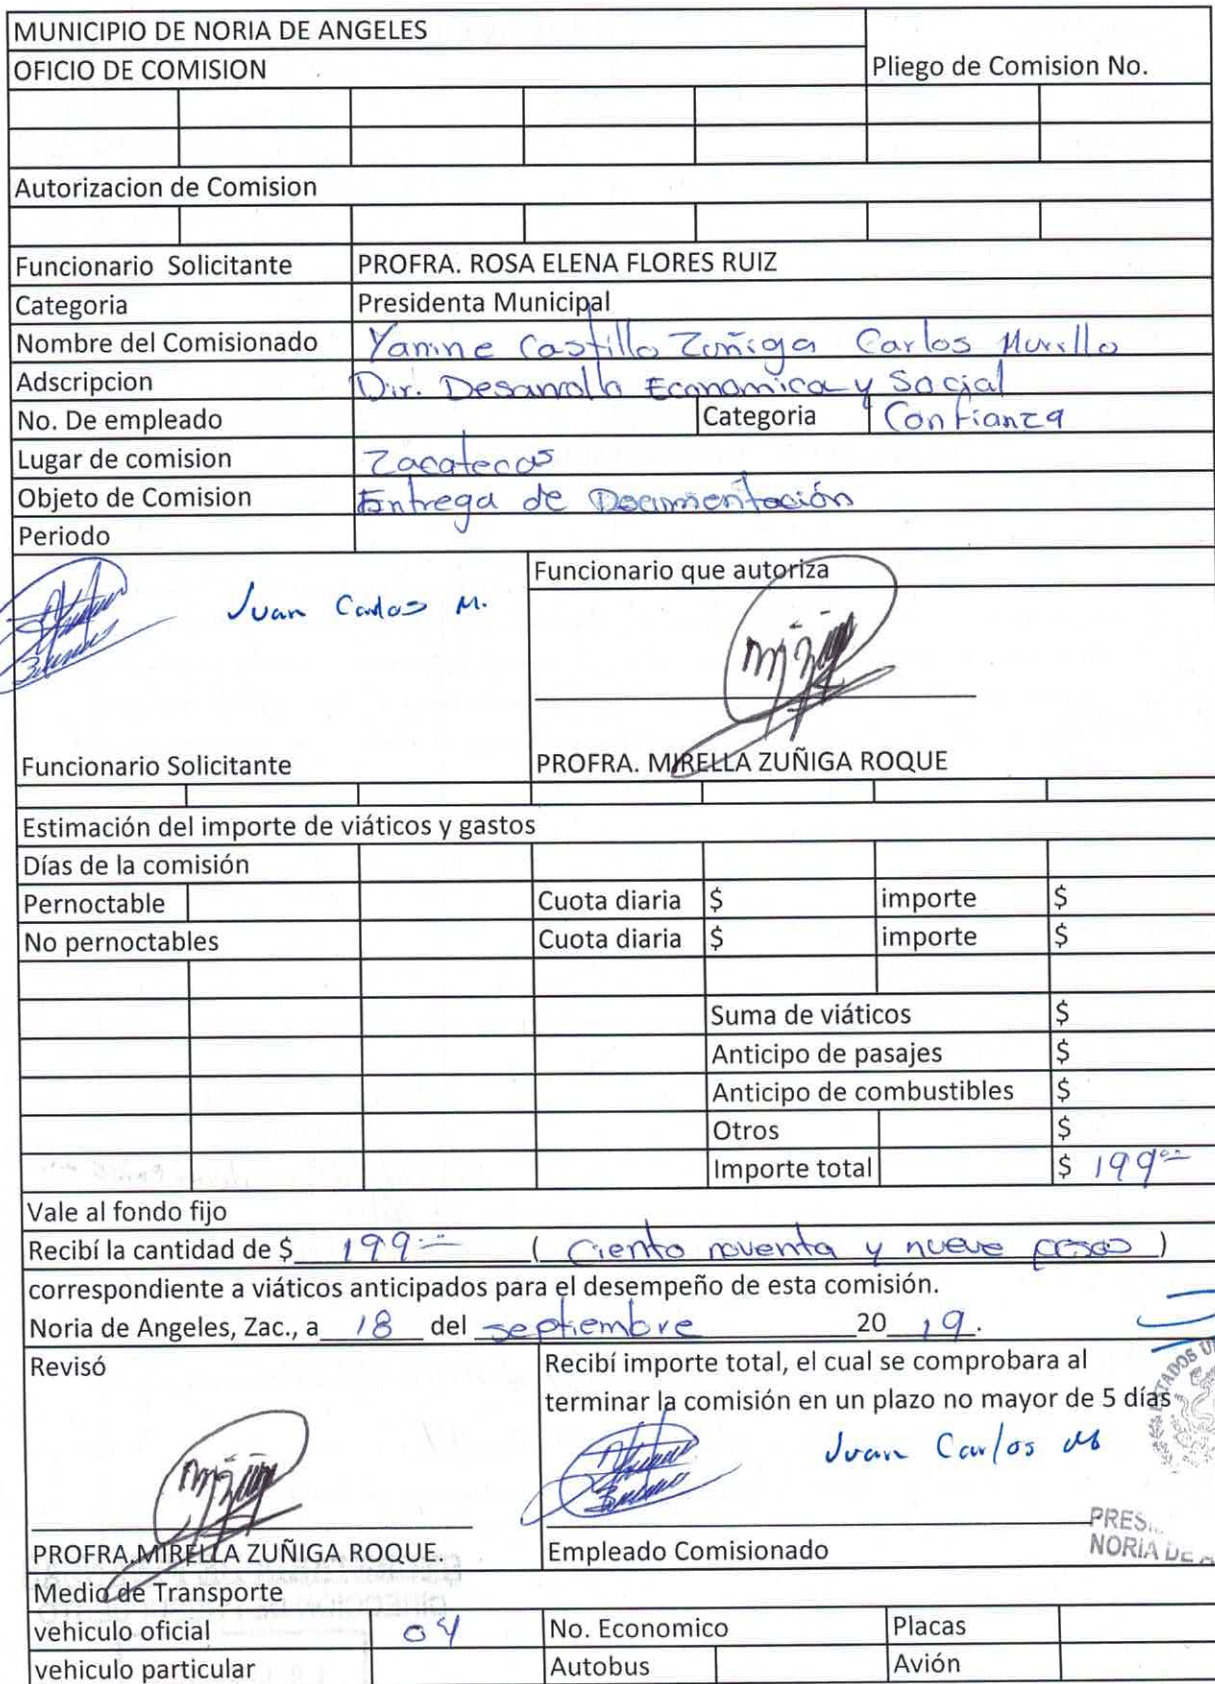 MUNICIPIO DE NORIA DE ANGELES
OFICIO DE COMISION Pliego de Comision No.
Autorizacion de Comision
Funcionario Solicitante PROFRA. ROSA ELENA FLORES RUIZ
Categoria Presidenta Municipal
Nombre del Comisionado Yanine Castillo Zuñiga Carlos Murillo
Adscripcion Dir. Desarrollo Economica y Social
No. De empleado Categoria Confianza
Lugar de comision Zacatecas
Objeto de Comision Entrega de Documentación
Periodo
Funcionario que autoriza
Juan Carlos M.
Funcionario Solicitante PROFRA. MIRELLA ZUÑIGA ROQUE
Estimación del importe de viáticos y gastos
Días de la comisión
Pernoctable Cuota diaria $ importe $
No pernoctables Cuota diaria $ importe $
Suma de viáticos $
Anticipo de pasajes $
Anticipo de combustibles $
Otros $
Importe total $ 199.00
Vale al fondo fijo
Recibí la cantidad de $ 199.00 ( Ciento noventa y nueve pesos )
correspondiente a viáticos anticipados para el desempeño de esta comisión.
Noria de Angeles, Zac., a 18 del septiembre 20 19.
Revisó Recibí importe total, el cual se comprobara al
terminar la comisión en un plazo no mayor de 5 días
Juan Carlos M
PROFRA.MIRELLA ZUÑIGA ROQUE. Empleado Comisionado
NORIA DE
Medio de Transporte
vehiculo oficial 04 No. Economico Placas
vehiculo particular Autobus Avión